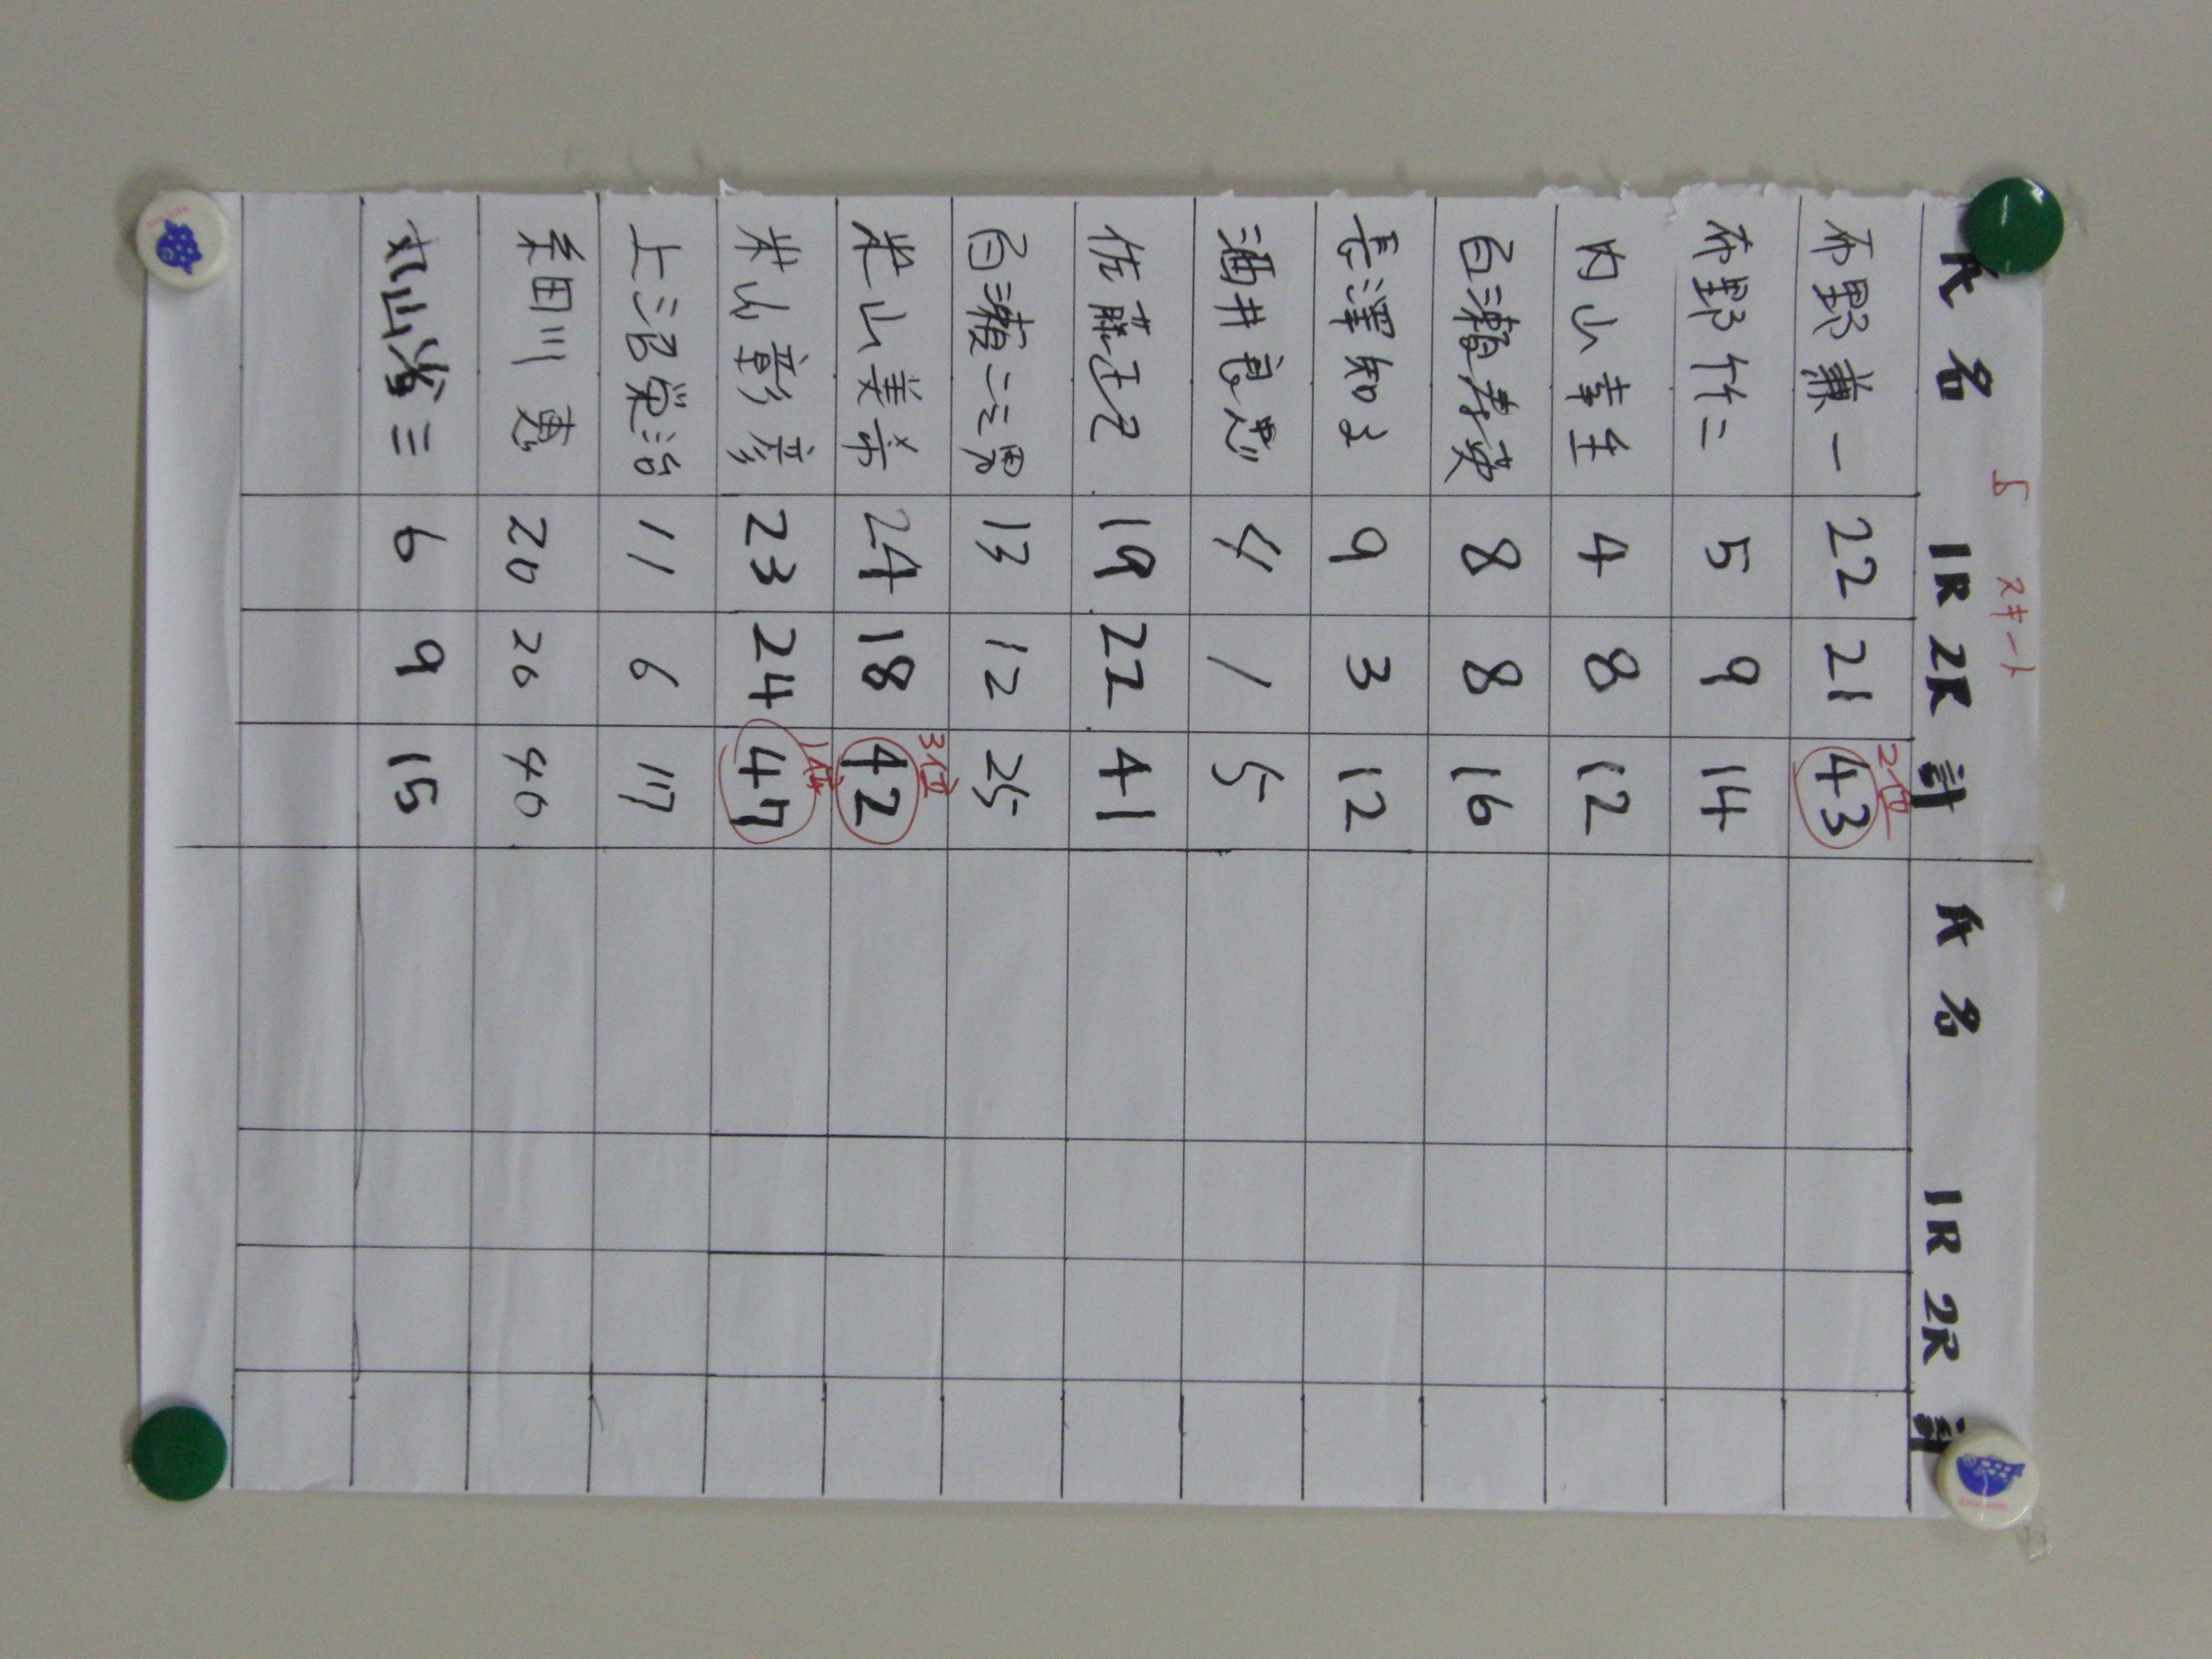 スキート
氏名 1R 2R 計 氏名 1R 2R 計
布野兼一 22 21 43 2位
布野仁二 5 9 14
内山幸生 4 8 12
白瀬春英 8 8 16
長澤知 9 3 12
酒井良忠 4 1 5
佐藤正己 19 22 41
白瀬二三男 13 12 25
柴山美希 24 18 42 3位
柴山彰彦 23 24 47 1位
上沼栄治 11 6 17
田川 恵 20 20 40
丸山省三 6 9 15